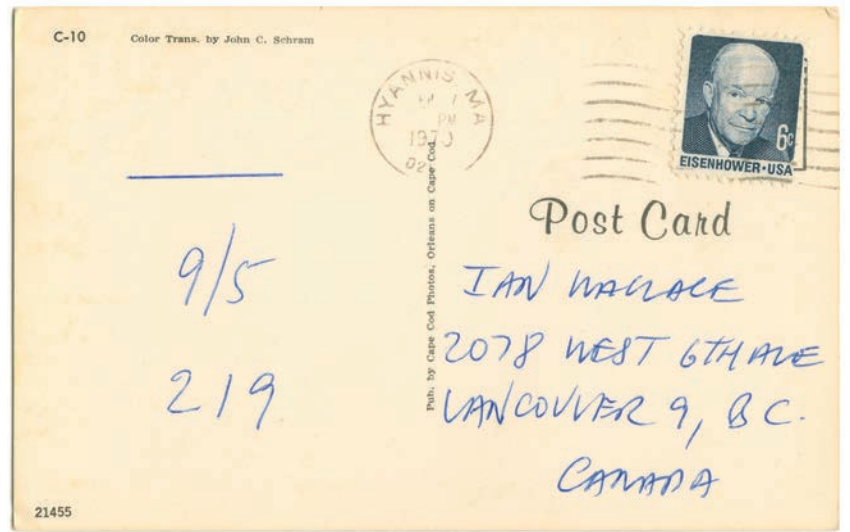 C-10 Color Trans. by John C. Schram
HYANNIS, MA
PM
1970
02
6c
EISENHOWER·USA
Post Card
Pub. by Cape Cod Photos, Orleans on Cape Cod
9/5
219
IAN WALLACE
2078 WEST 6TH AVE
VANCOUVER 9, BC.
CANADA
21455